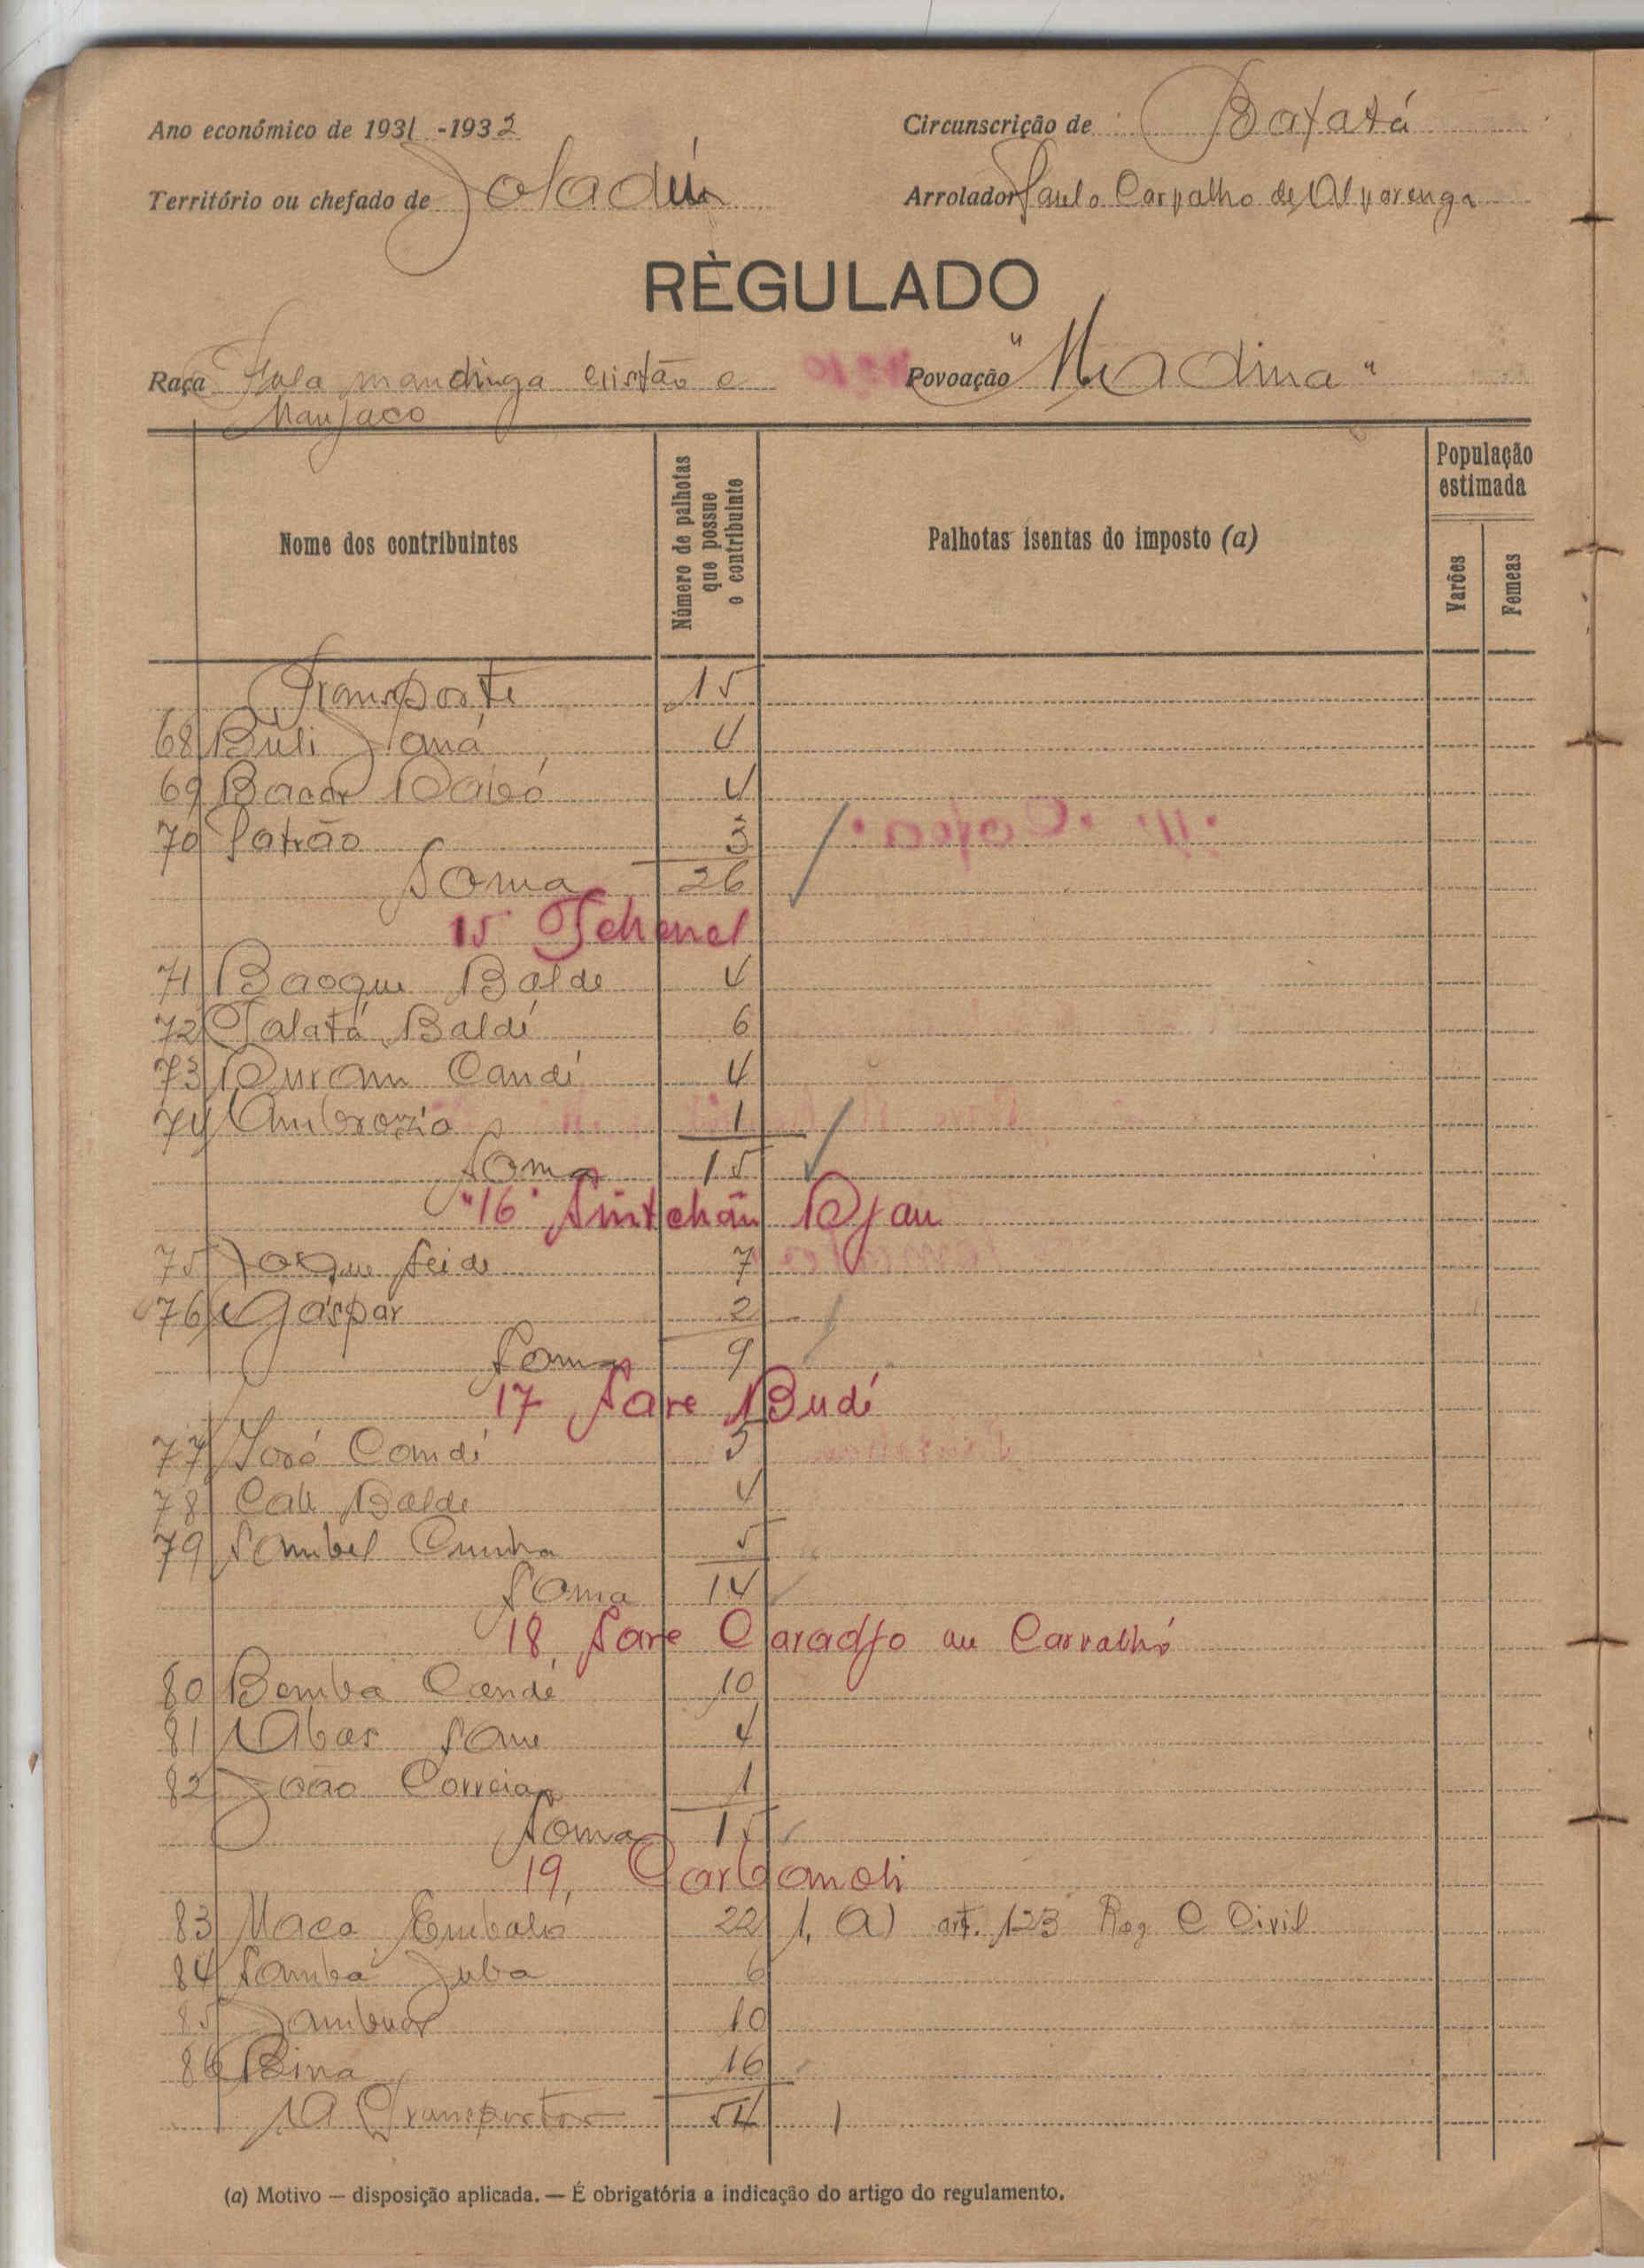 Ano económico de 1931-1932
Circunscrição de Bafatá
Território ou chefado de Joladú
Arrolador Paulo Carvalho de Alvarenga
RÈGULADO
Raça Fula mandinga cristão e
Manjaco
Povoação "Madina"
Nome dos contribuintes
Número de palhotas
que possue
o contribuinte
Palhotas isentas do imposto (a)
População
estimada
Varões
Femeas
Transporte 15
68 Buli Janá 4
69 Bacar 4
70 Patrão 3
Soma 26
15 Tchanel
71 Baoque Balde 4
72 Talatá Baldé 6
73 Candé 4
74 Ambrozio 1
Soma 15
"16" Sintchãu Djau
75 Joque Seide 7
76 Gaspar 2
Soma 9
17 Sare Budé
77 Joró Candé 5
78 Cali Balde 4
79 Sambel Cunha 5
Soma 14
18, Sare Caradjo au Carvalhó
80 Bemba Candé 10
81 Abas Sane 4
82 João Correia 1
Soma 15
19, Carbamoli
83 Maca Embaló 22 1, a) art. 123 Reg C Civil
84 Samba Juba 6
85 10
86 Bina 16
A Transportar 54 1
(a) Motivo — disposição aplicada. — É obrigatória a indicação do artigo do regulamento.